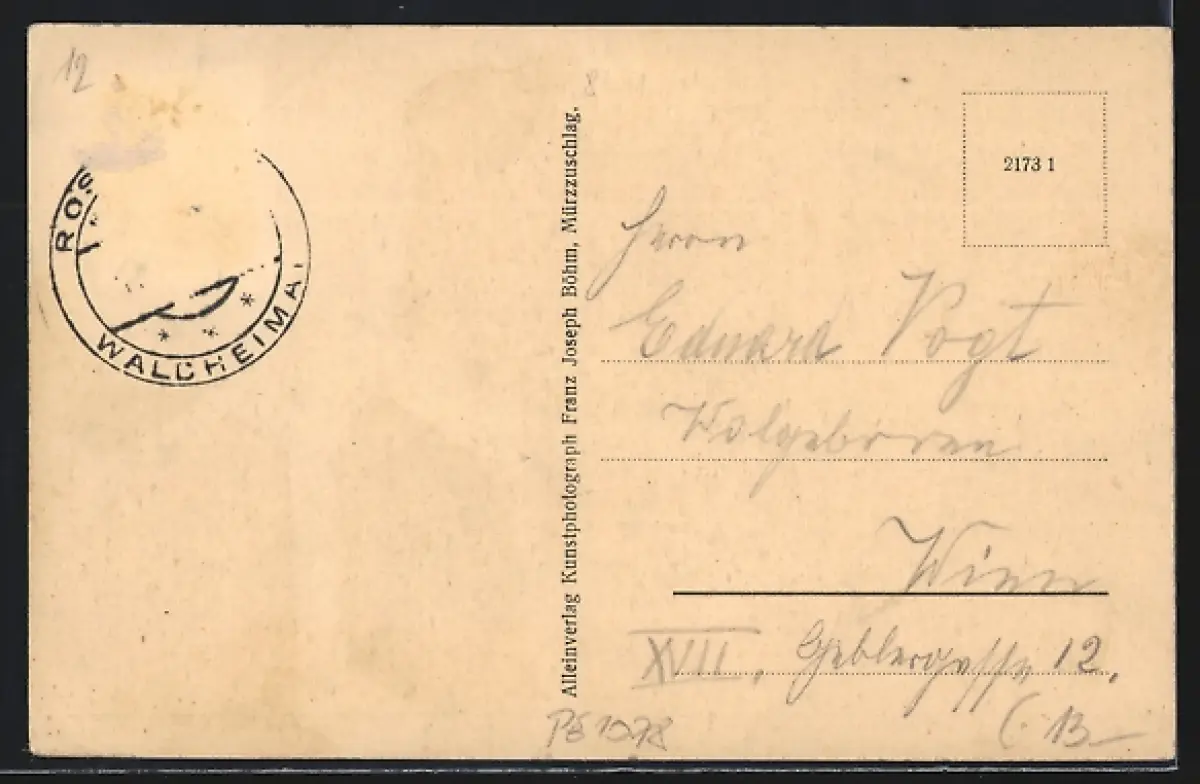 12
8
ROS
WALDHEIMA
Alleinverlag Kunstphotograph Franz Joseph Böhm, Mürzzuschlag.
2173 1
Herrn
Eduard Vogt
Wolgeboren
Wien
XVII, Geblergasse 12.
13